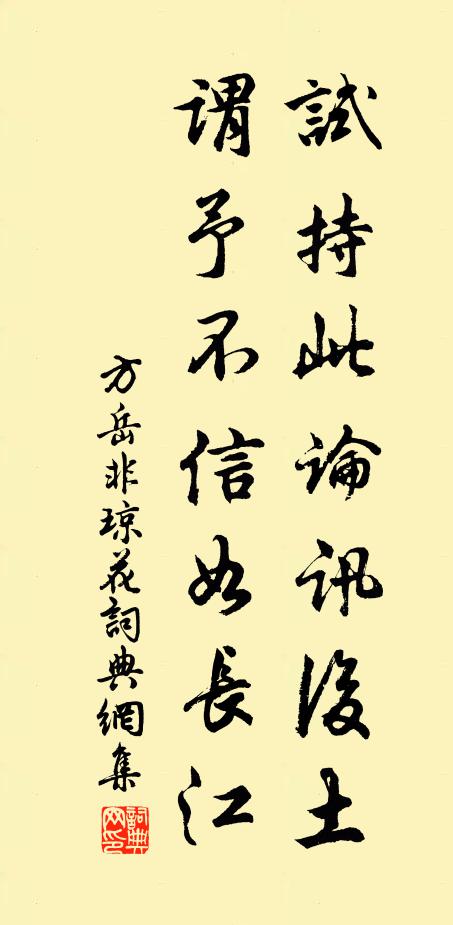 試持此論訊後土
謂予不信如長江
方岳非瓊花詞典網集
詞典網印